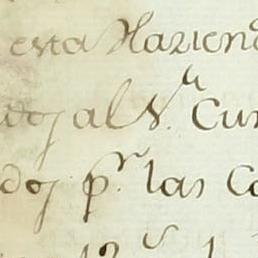 esta Haziend
dos al S.r Cur
dos p.r las Ca